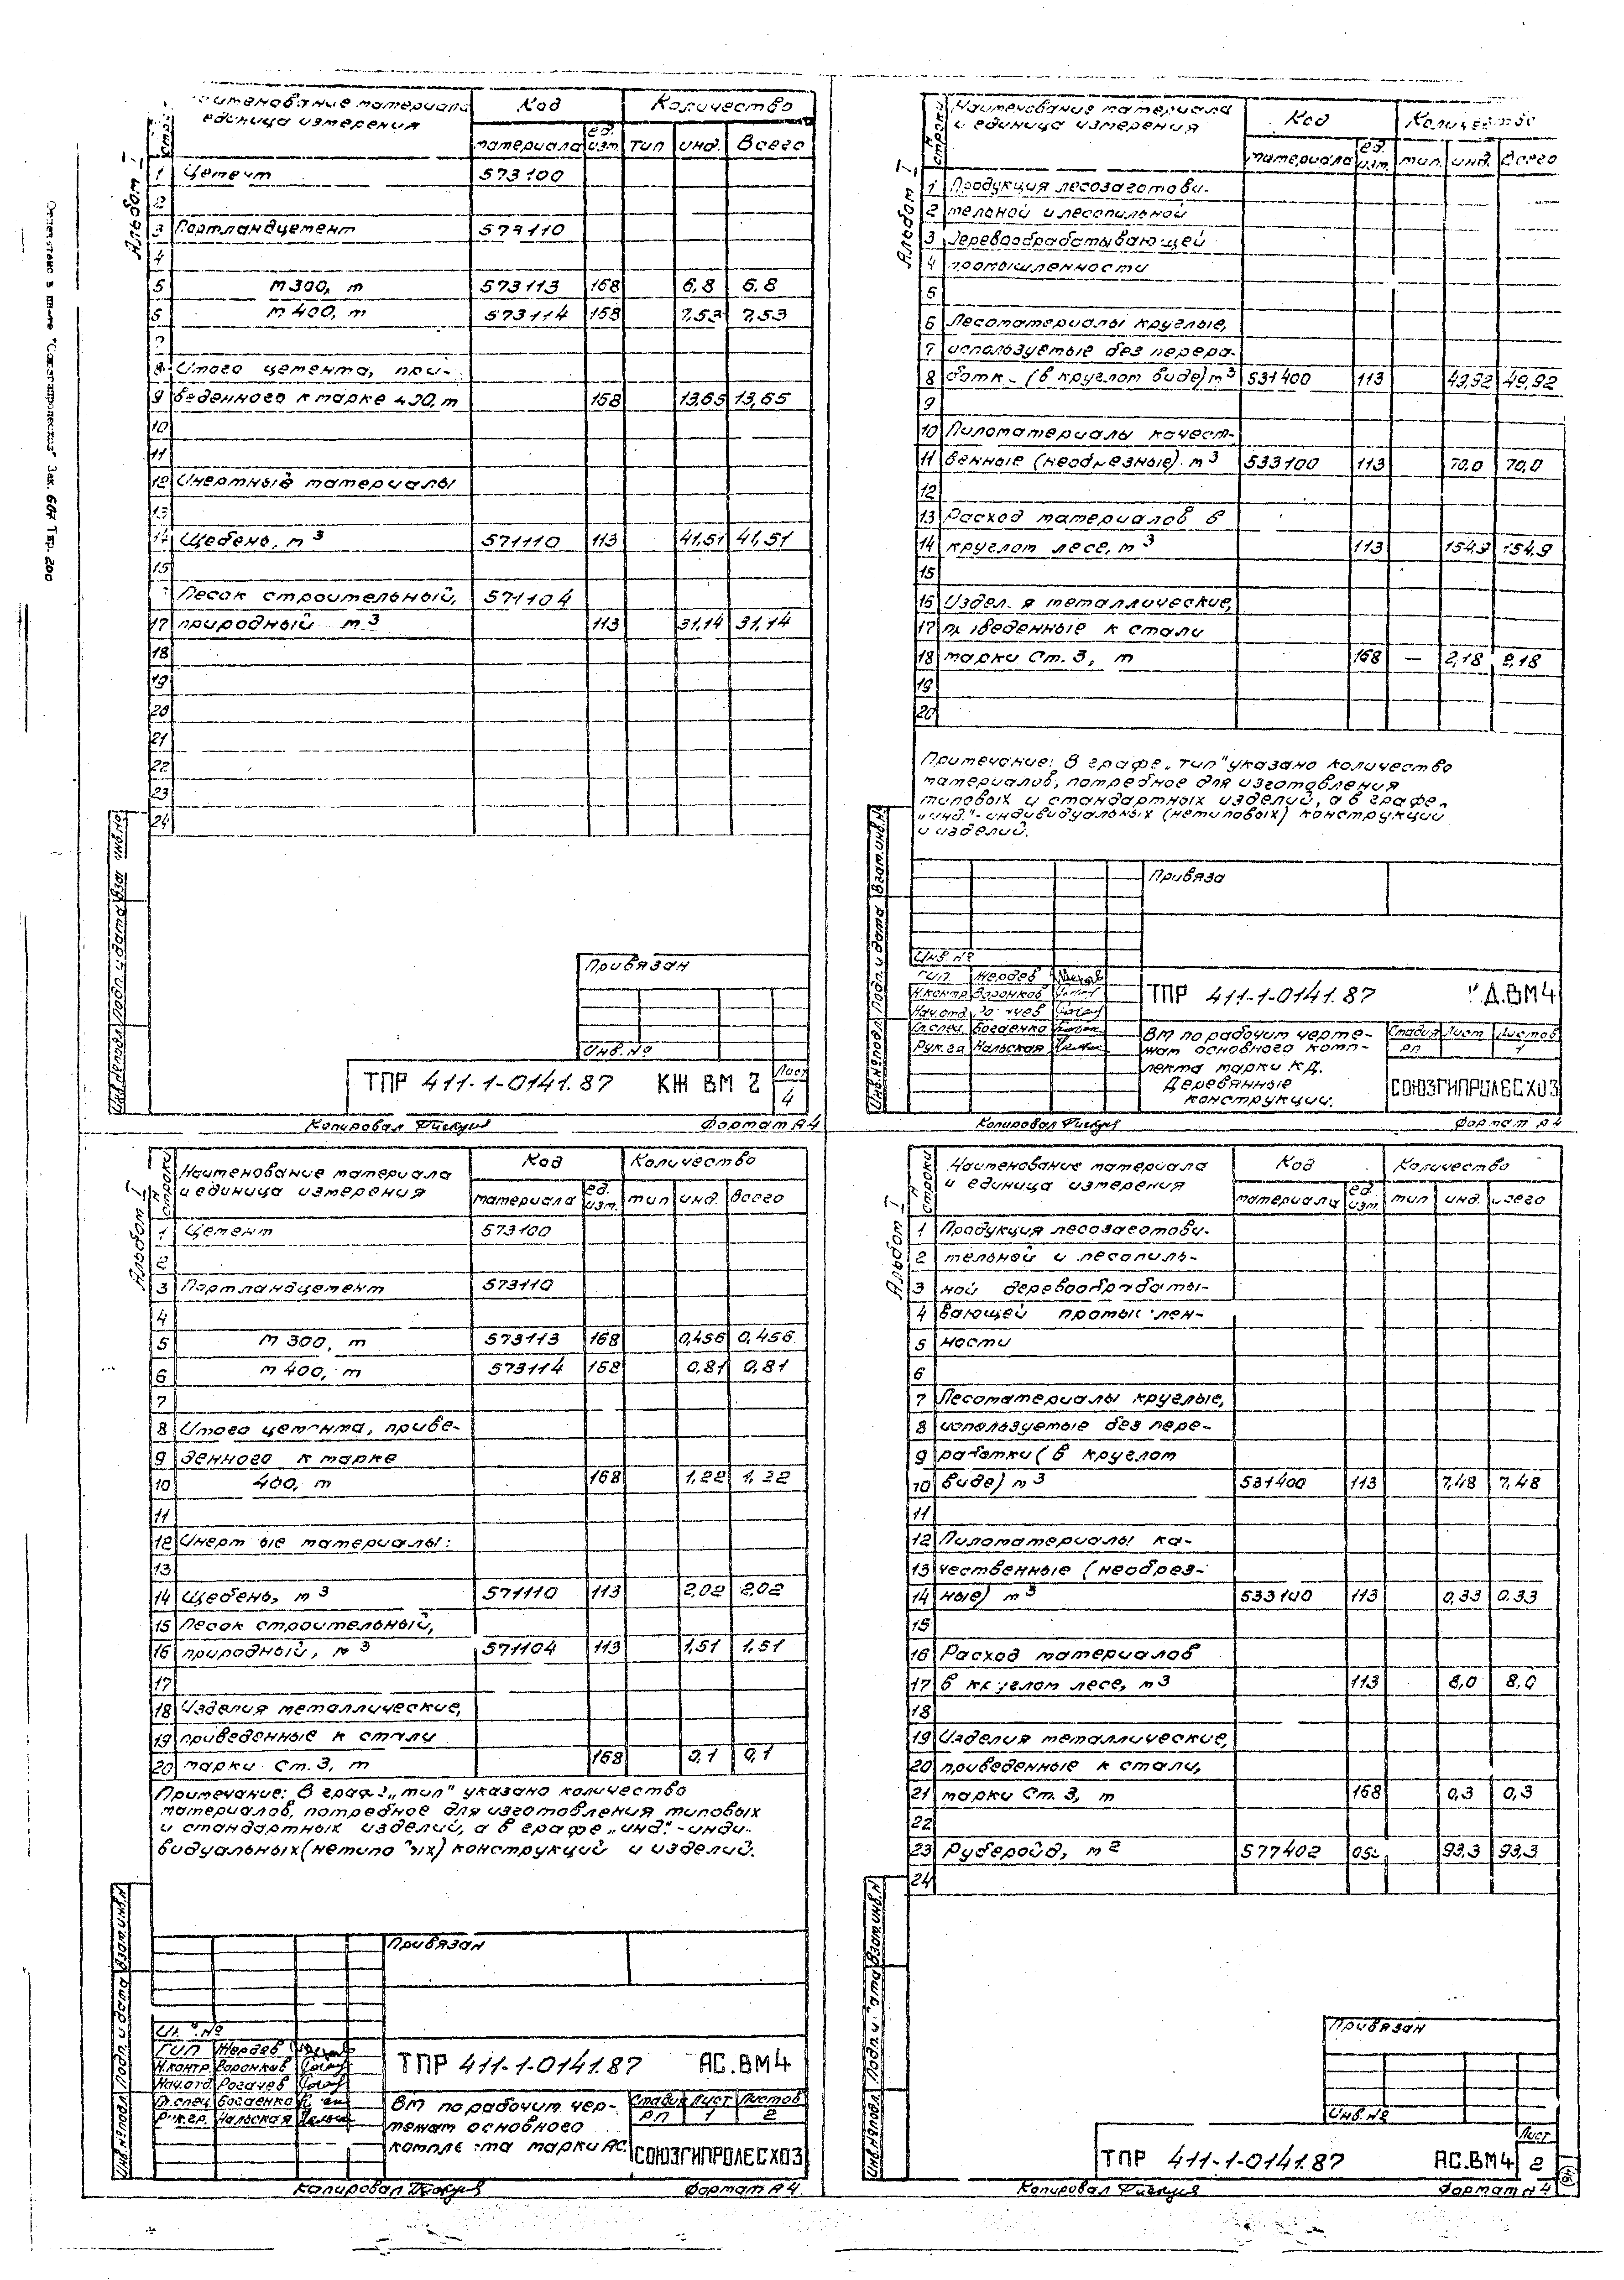 Наименование материала Код Количество
единица измерения
материала ед. изм. тип инд. Всего
Альбом I
1 Цемент 573100
2
3 Портландцемент 573110
4
5 м 300, т 573113 168 6,8 6,8
6 м 400, т 573114 168 7,53 7,53
7
8 Итого цемента, при-
9 веденного к марке 400, т 168 13,65 13,65
10
11
12 Инертные материалы
13
14 Щебень, м3 571110 113 41,51 41,51
15
Песок строительный, 571104
17 природный м3 113 31,14 31,14
18
19
20
21
22
23
24
Привязан
Инв. №
ТПР 411-1-0141.87 КЖ ВМ 2 Лист 4
Копировал Формат А4
Наименование материала Код Количество
и единица измерения
строки материала ед. изм. тип. инд. Всего
Альбом I
1 Продукция лесозаготови-
2 тельной и лесопильной
3 деревообрабатывающей
4 промышленности
5
6 Лесоматериалы круглые,
7 используемые без перера-
8 ботк - (в круглом виде) м3 531400 113 49,92 49,92
9
10 Пиломатериалы качест-
11 венные (необрезные) м3 533100 113 70,0 70,0
12
13 Расход материалов в
14 круглом лесе, м3 113 154,9 154,9
15
16 Издел. я металлические,
17 приведенные к стали
18 марки Ст. 3, т 168 — 2,18 2,18
19
20
Примечание: В графе „тип" указано количество
материалов, потребное для изготовления
типовых и стандартных изделий, а в графе
„инд."- индивидуальных (нетиповых) конструкций
и изделий.
Привяза
Инв №
ГИП Жердев
Н.контр. Воронков
Нач.отд
Гл.спец. Богданко
Рук. гр Нальская
ТПР 411-1-0141.87 КД.ВМ4
ВМ по рабочим черте-
жам основного комп-
лекта марки КД.
Деревянные
конструкции.
Стадия Лист Листов
РП 1
СОЮЗГИПРОЛЕСХОЗ
Копировал Формат А4
Наименование материала Код Количество
и единица измерения
строки материала ед. изм. тип инд. Всего
Альбом I
1 Цемент 573100
2
3 Портландцемент 573110
4
5 м 300, т 573113 168 0,456 0,456
6 м 400, т 573114 168 0,81 0,81
7
8 Итого цемента, приве-
9 денного к марке
10 400, т 168 1,22 1,22
11
12 Инерт ые материалы:
13
14 Щебень, м3 571110 113 2,02 2,02
15 Песок строительный,
16 природный, м3 571104 113 1,51 1,51
17
18 Изделия металлические,
19 приведенные к стали
20 марки Ст. 3, т 168 0,1 0,1
Примечание: В графе „тип" указано количество
материалов, потребное для изготовления типовых
и стандартных изделий, а в графе „инд."-инди-
видуальных (нетипо ых) конструкций и изделий.
Привязан
Инв. №
ГИП Жердев
Н.контр. Воронков
Нач.отд Рогачев
Гл.спец. Богданко
Рук.гр. Нальская
ТПР 411-1-0141.87 АС.ВМ4
ВМ по рабочим чер-
тежам основного
компле та марки АС.
Стадия Лист Листов
РП 1 2
СОЮЗГИПРОЛЕСХОЗ
Копировал Формат А4.
Наименование материала Код Количество
и единица измерения
строки материала ед. изм. тип инд. всего
Альбом I
1 Продукция лесозаготови-
2 тельной и лесопиль-
3 ной деревообрабаты-
4 вающей промыш лен-
5 ности
6
7 Лесоматериалы круглые,
8 используемые без пере-
9 работки (в круглом
10 виде) м3 531400 113 7,48 7,48
11
12 Пиломатериалы ка-
13 чественные (необрез-
14 ные) м3 533100 113 0,33 0,33
15
16 Расход материалов
17 в круглом лесе, м3 113 8,0 8,0
18
19 Изделия металлические,
20 приведенные к стали,
21 марки Ст. 3, т 168 0,3 0,3
22
23 Рубероид, м2 577402 93,3 93,3
24
Привязан
Инв. №
ТПР 411-1-0141.87 АС.ВМ4 Лист 2
Копировал Формат А4
Зак. 607 Тир. 200
Инв.№подл. Подп. и дата Взам.инв.№